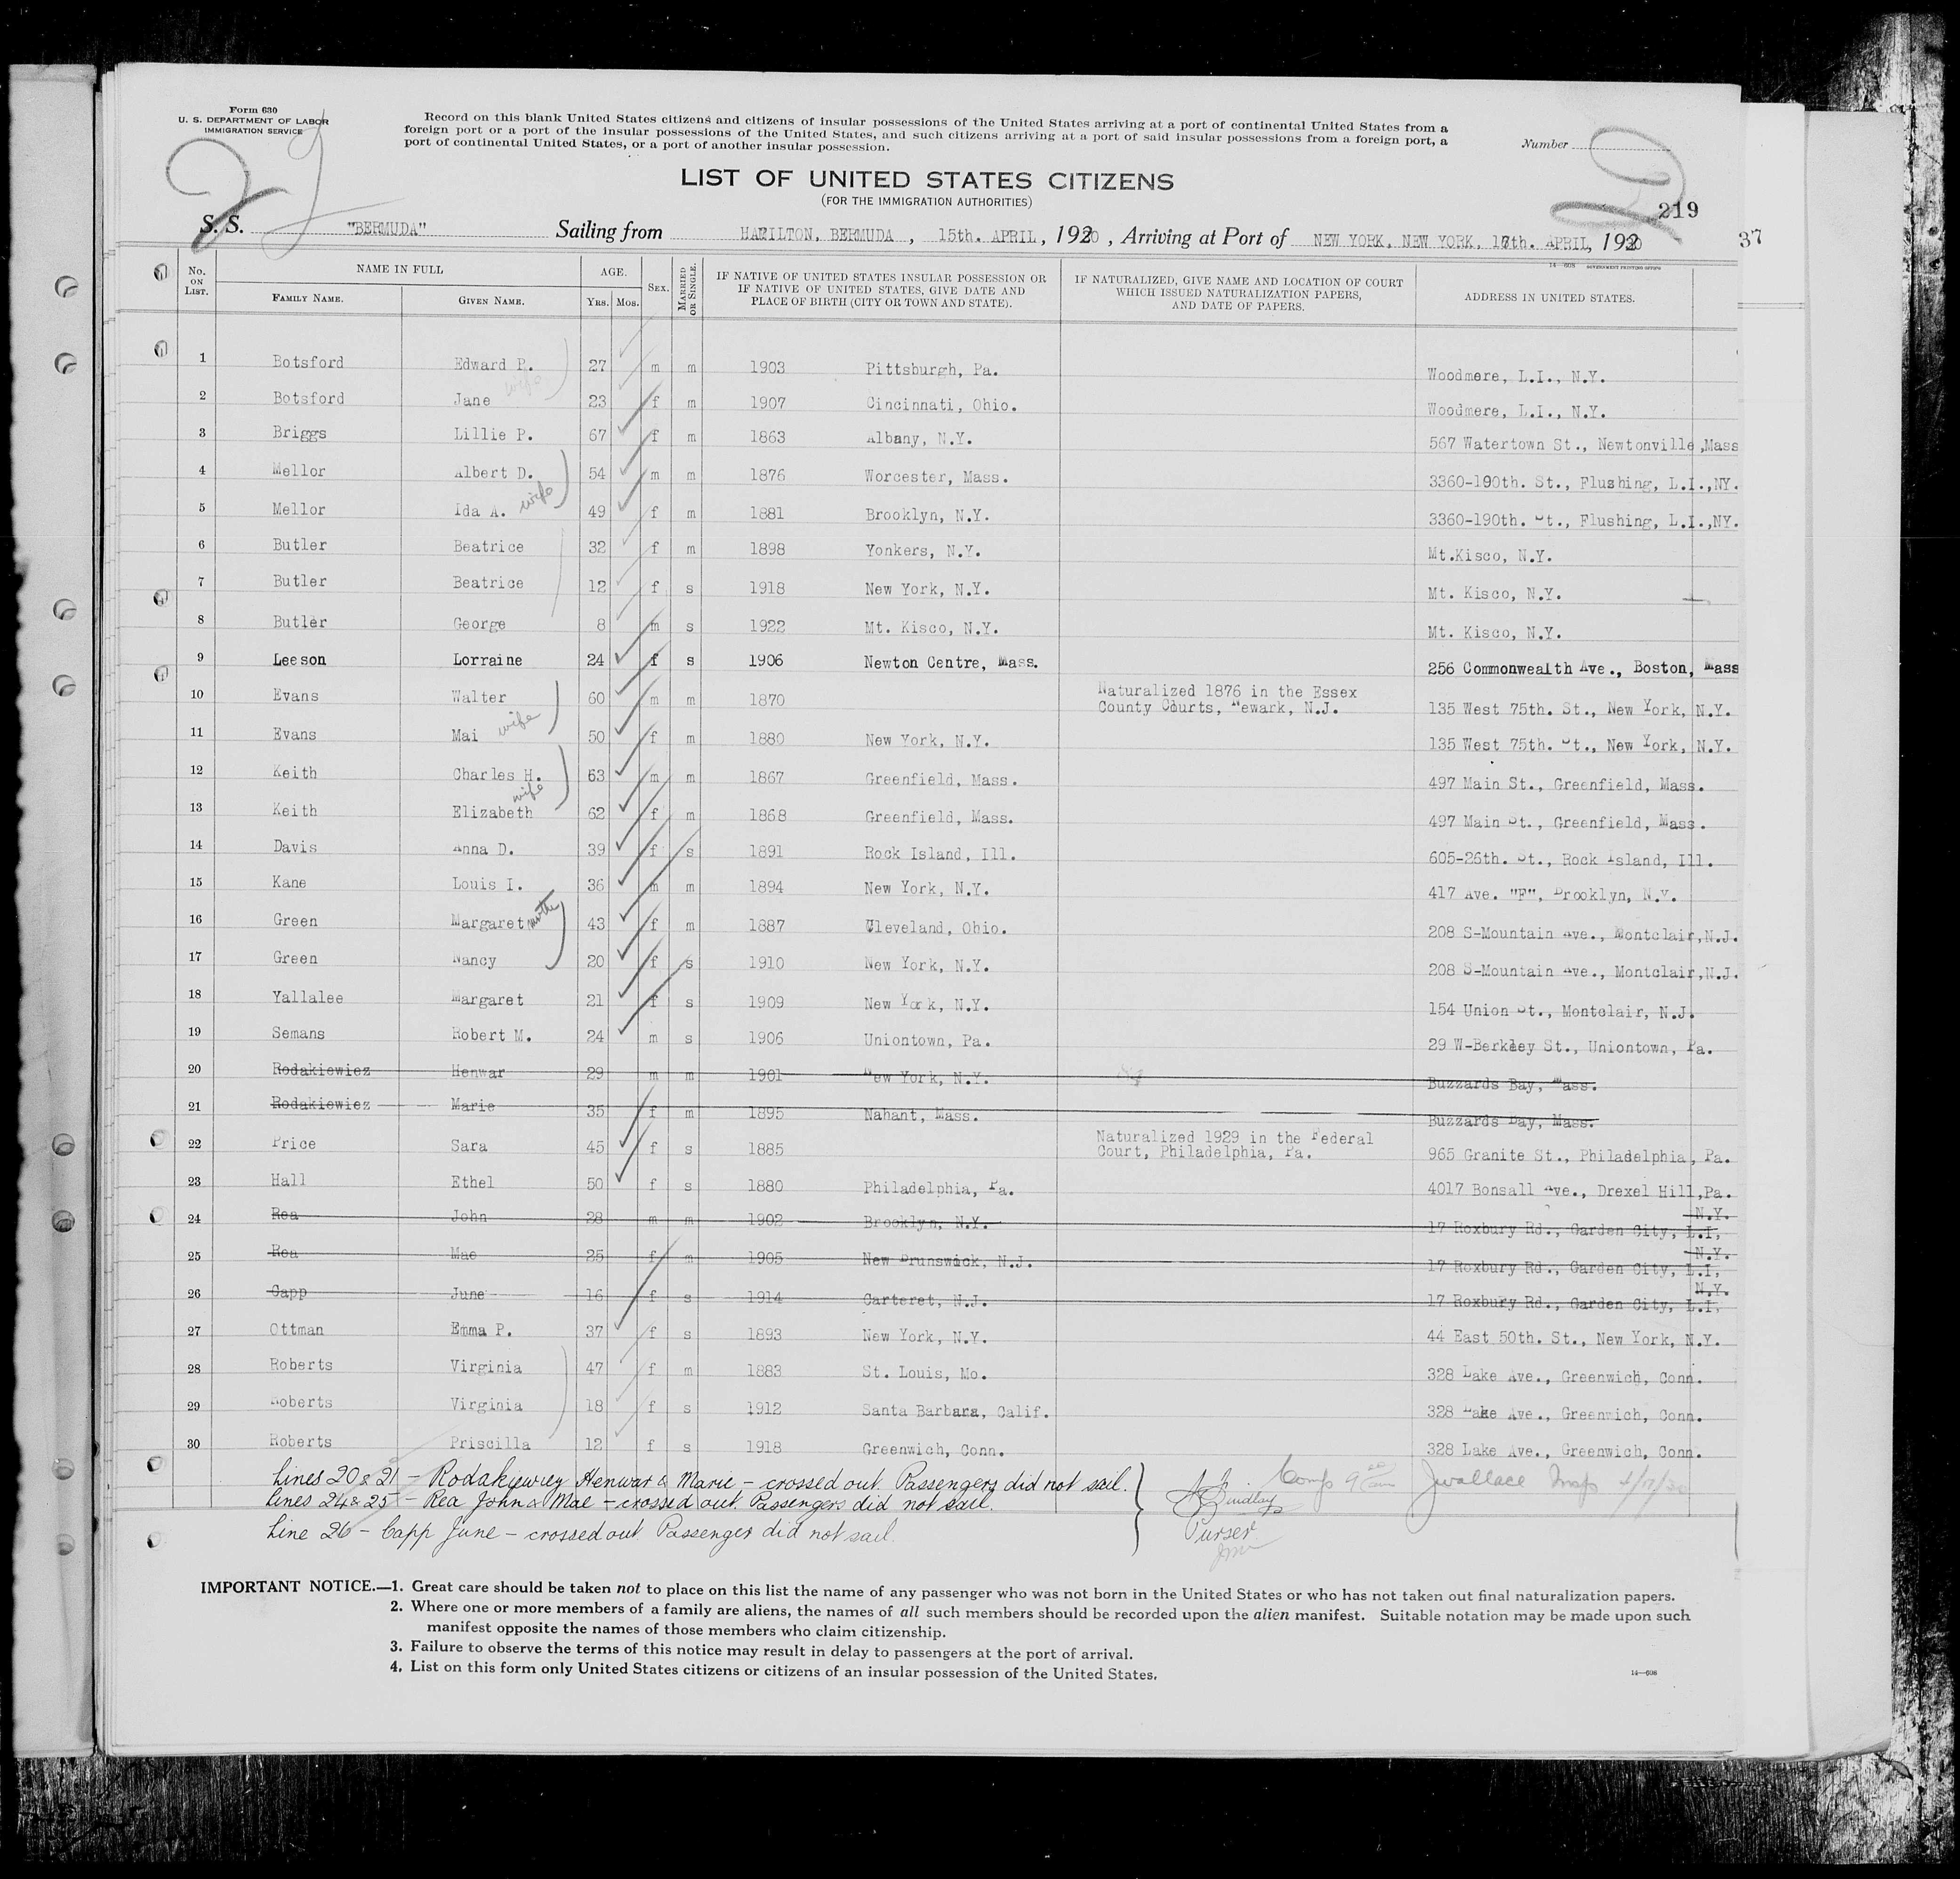 Form 630
U. S. DEPARTMENT OF LABOR
IMMIGRATION SERVICE
Record on this blank United States citizens and citizens of insular possessions of the United States arriving at a port of continental United States from a
foreign port or a port of the insular possessions of the United States, and such citizens arriving at a port of said insular possessions from a foreign port, a
port of continental United States, or a port of another insular possession.
Number
LIST OF UNITED STATES CITIZENS
(FOR THE IMMIGRATION AUTHORITIES)
219
S. S. "BERMUDA" Sailing from HAMILTON, BERMUDA, 15th. APRIL, 1930, Arriving at Port of NEW YORK, NEW YORK, 17th. APRIL, 1930
37
14—608 GOVERNMENT PRINTING OFFICE
No. ON LIST. NAME IN FULL FAMILY NAME. GIVEN NAME. AGE. Yrs. Mos. SEX. MARRIED OR SINGLE. IF NATIVE OF UNITED STATES INSULAR POSSESSION OR IF NATIVE OF UNITED STATES, GIVE DATE AND PLACE OF BIRTH (CITY OR TOWN AND STATE). IF NATURALIZED, GIVE NAME AND LOCATION OF COURT WHICH ISSUED NATURALIZATION PAPERS, AND DATE OF PAPERS. ADDRESS IN UNITED STATES.
1 Botsford Edward P. 27 m m 1903 Pittsburgh, Pa. Woodmere, L.I., N.Y.
wife
2 Botsford Jane 23 f m 1907 Cincinnati, Ohio. Woodmere, L.I., N.Y.
3 Briggs Lillie P. 67 f m 1863 Albany, N.Y. 567 Watertown St., Newtonville, Mass
4 Mellor Albert D. 54 m m 1876 Worcester, Mass. 3360-190th. St., Flushing, L.I.,NY.
5 Mellor Ida A. wife 49 f m 1881 Brooklyn, N.Y. 3360-190th. St., Flushing, L.I.,NY.
6 Butler Beatrice 32 f m 1898 Yonkers, N.Y. Mt.Kisco, N.Y.
7 Butler Beatrice 12 f s 1918 New York, N.Y. Mt. Kisco, N.Y.
8 Butler George 8 m s 1922 Mt. Kisco, N.Y. Mt. Kisco, N.Y.
9 Leeson Lorraine 24 f s 1906 Newton Centre, Mass. 256 Commonwealth Ave., Boston, Mass
10 Evans Walter 60 m m 1870 Naturalized 1876 in the Essex County Courts, Newark, N.J. 135 West 75th. St., New York, N.Y.
11 Evans Mai wife 50 f m 1880 New York, N.Y. 135 West 75th. St., New York, N.Y.
12 Keith Charles H. 63 m m 1867 Greenfield, Mass. 497 Main St., Greenfield, Mass.
wife
13 Keith Elizabeth 62 f m 1868 Greenfield, Mass. 497 Main St., Greenfield, Mass.
14 Davis Anna D. 39 f s 1891 Rock Island, Ill. 605-26th. St., Rock Island, Ill.
15 Kane Louis I. 36 m m 1894 New York, N.Y. 417 Ave. "F", Brooklyn, N.Y.
16 Green Margaret 43 f m 1887 Cleveland, Ohio. 208 S-Mountain Ave., Montclair,N.J.
17 Green Nancy 20 f s 1910 New York, N.Y. 208 S-Mountain Ave., Montclair,N.J.
18 Yallalee Margaret 21 f s 1909 New York, N.Y. 154 Union St., Montclair, N.J.
19 Semans Robert M. 24 m s 1906 Uniontown, Pa. 29 W-Berkley St., Uniontown, Pa.
20 Rodakiewiez Henwar 29 m m 1901 New York, N.Y. Buzzards Bay, Mass.
21 Rodakiewiez Marie 35 f m 1895 Nahant, Mass. Buzzards Bay, Mass.
22 Price Sara 45 f s 1885 Naturalized 1929 in the Federal Court, Philadelphia, Pa. 965 Granite St., Philadelphia, Pa.
23 Hall Ethel 50 f s 1880 Philadelphia, Pa. 4017 Bonsall Ave., Drexel Hill,Pa.
24 Rea John 28 m m 1902 Brooklyn, N.Y. 17 Roxbury Rd., Garden City, L.I, N.Y.
25 Rea Mae 25 f m 1905 New Brunswick, N.J. 17 Roxbury Rd., Garden City, L.I, N.Y.
26 Capp June 16 f s 1914 Carteret, N.J. 17 Roxbury Rd., Garden City, L.I, N.Y.
27 Ottman Emma P. 37 f s 1893 New York, N.Y. 44 East 50th. St., New York, N.Y.
28 Roberts Virginia 47 f m 1883 St. Louis, Mo. 328 Lake Ave., Greenwich, Conn.
29 Roberts Virginia 18 f s 1912 Santa Barbara, Calif. 328 Lake Ave., Greenwich, Conn.
30 Roberts Priscilla 12 f s 1918 Greenwich, Conn. 328 Lake Ave., Greenwich, Conn.
Lines 20 & 21 – Rodakiewiez Henwar & Marie – crossed out. Passengers did not sail.
Lines 24 & 25 – Rea John & Mae – crossed out. Passengers did not sail.
Line 26 – Capp June – crossed out. Passenger did not sail.
Purser
JWallace Insp 4/17/30
IMPORTANT NOTICE.—1. Great care should be taken not to place on this list the name of any passenger who was not born in the United States or who has not taken out final naturalization papers.
2. Where one or more members of a family are aliens, the names of all such members should be recorded upon the alien manifest. Suitable notation may be made upon such
manifest opposite the names of those members who claim citizenship.
3. Failure to observe the terms of this notice may result in delay to passengers at the port of arrival.
4. List on this form only United States citizens or citizens of an insular possession of the United States.
14—608